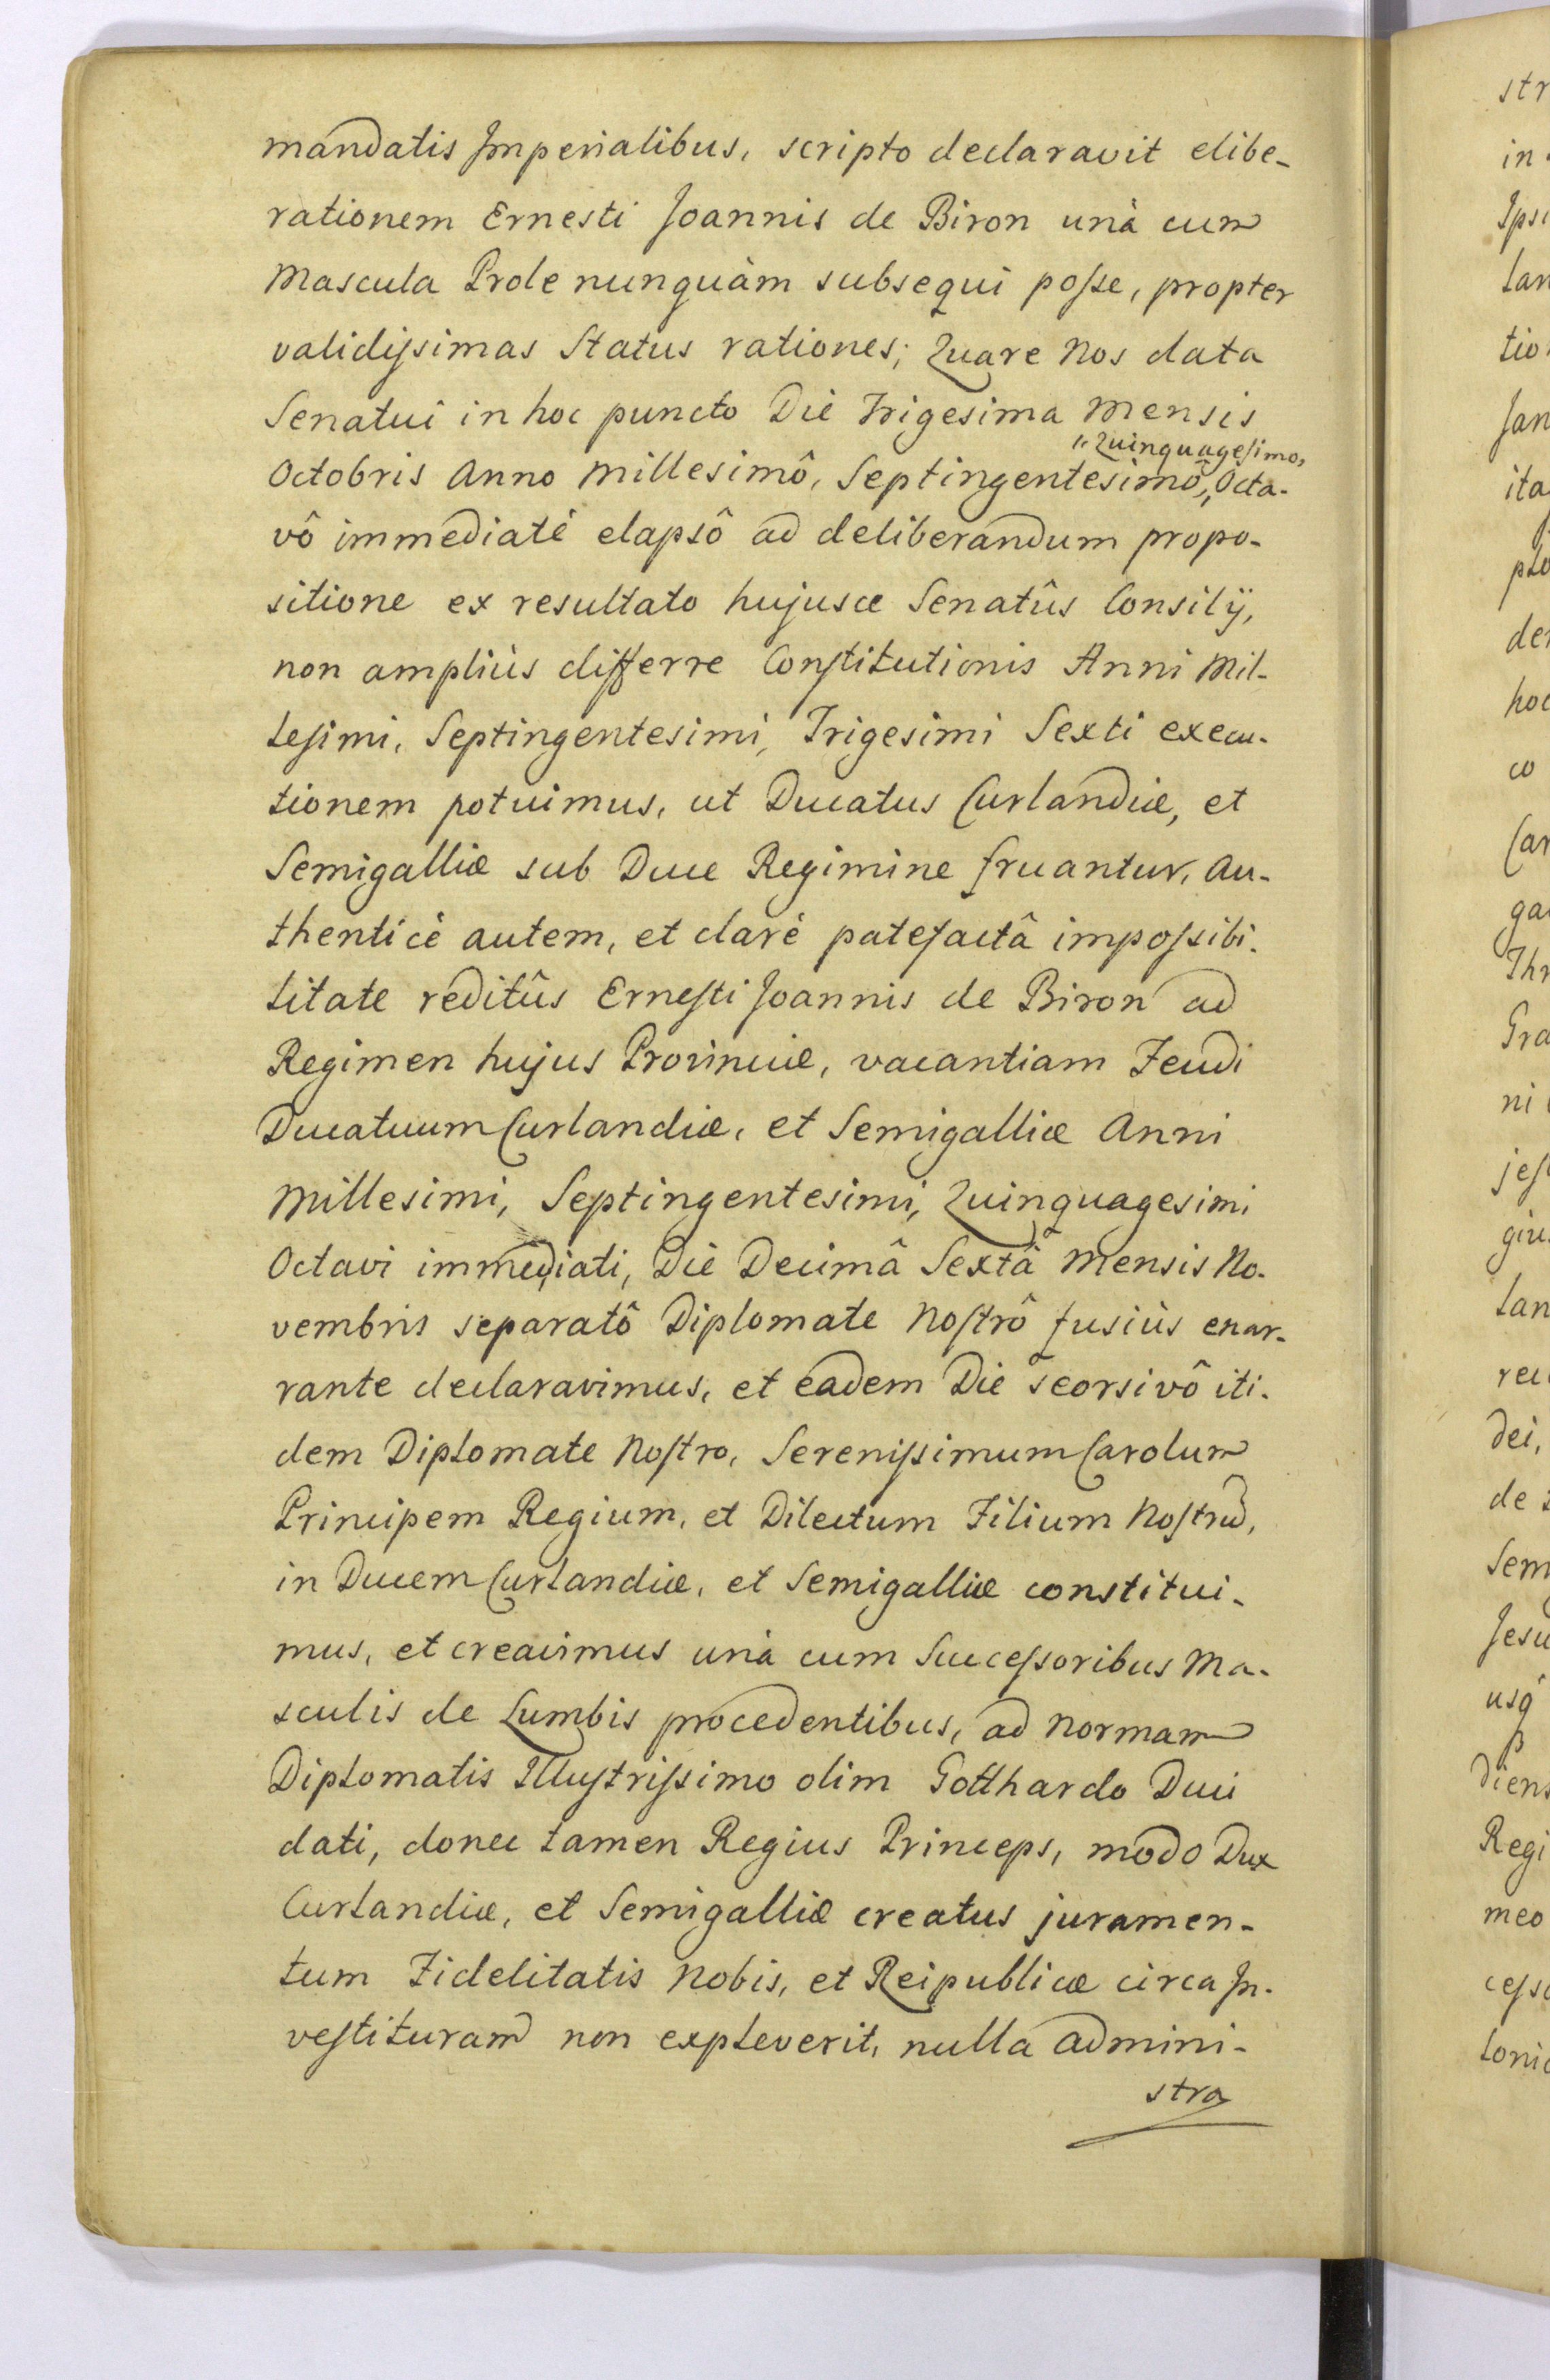 mandatis Imperialibus, scripto declaravit elibe-
rationem Ernesti Joannis de Biron unà cum
Mascula Prole nunquàm subsequi poſse, propter
validiſsimas Status rationes; Quare Nos data
Senatui in hoc puncto Die Trigesima Mensis
"Quinquageſimo,
Octobris Anno Millesimô, Septingentesimô,, Octa-
vô immediatè elapsô ad deliberandum propo-
sitione ex resultato hujusce Senatûs Consilij,
non ampliùs differre Conſtitutionis Anni Mil-
leſimi, Septingentesimi, Trigesimi Sexti execu-
tionem potuimus, ut Ducatus Curlandiæ, et
Semigalliæ sub Duce Regimine fruantur, Au-
thenticè autem, et clarè patefactâ impoſsibi-
litate reditûs Erneſti Joannis de Biron ad
Regimen hujus Provinciæ, vacantiam Feudi
Ducatuum Curlandiæ, et Semigalliæ Anni
Millesimi, Septingentesimi, Quinquagesimi
Octavi immediati, Die Decimâ Sextâ Mensis No-
vembris separatô Diplomate Noſtrô fusiùs enar-
rante declaravimus, et eadem Die seorsivô iti-
dem Diplomate Noſtro, Sereniſsimum Carolum
Principem Regium, et Dilectum Filium Noſtrũ,
in Ducem Curlandiæ, et Semigalliæ constitui-
mus, et creavimus unà cum Succeſsoribus Ma-
sculis de Lumbis procedentibus, ad normam
Diplomatis Illuſtriſsimo olim Gotthardo Duci
dati, donec tamen Regius Princeps, modo Dux
Curlandiæ, et Semigalliæ creatus juramen-
tum Fidelitatis Nobis, et Reipublicæ circa In-
veſtituram non expleverit, nulla admini-
stra